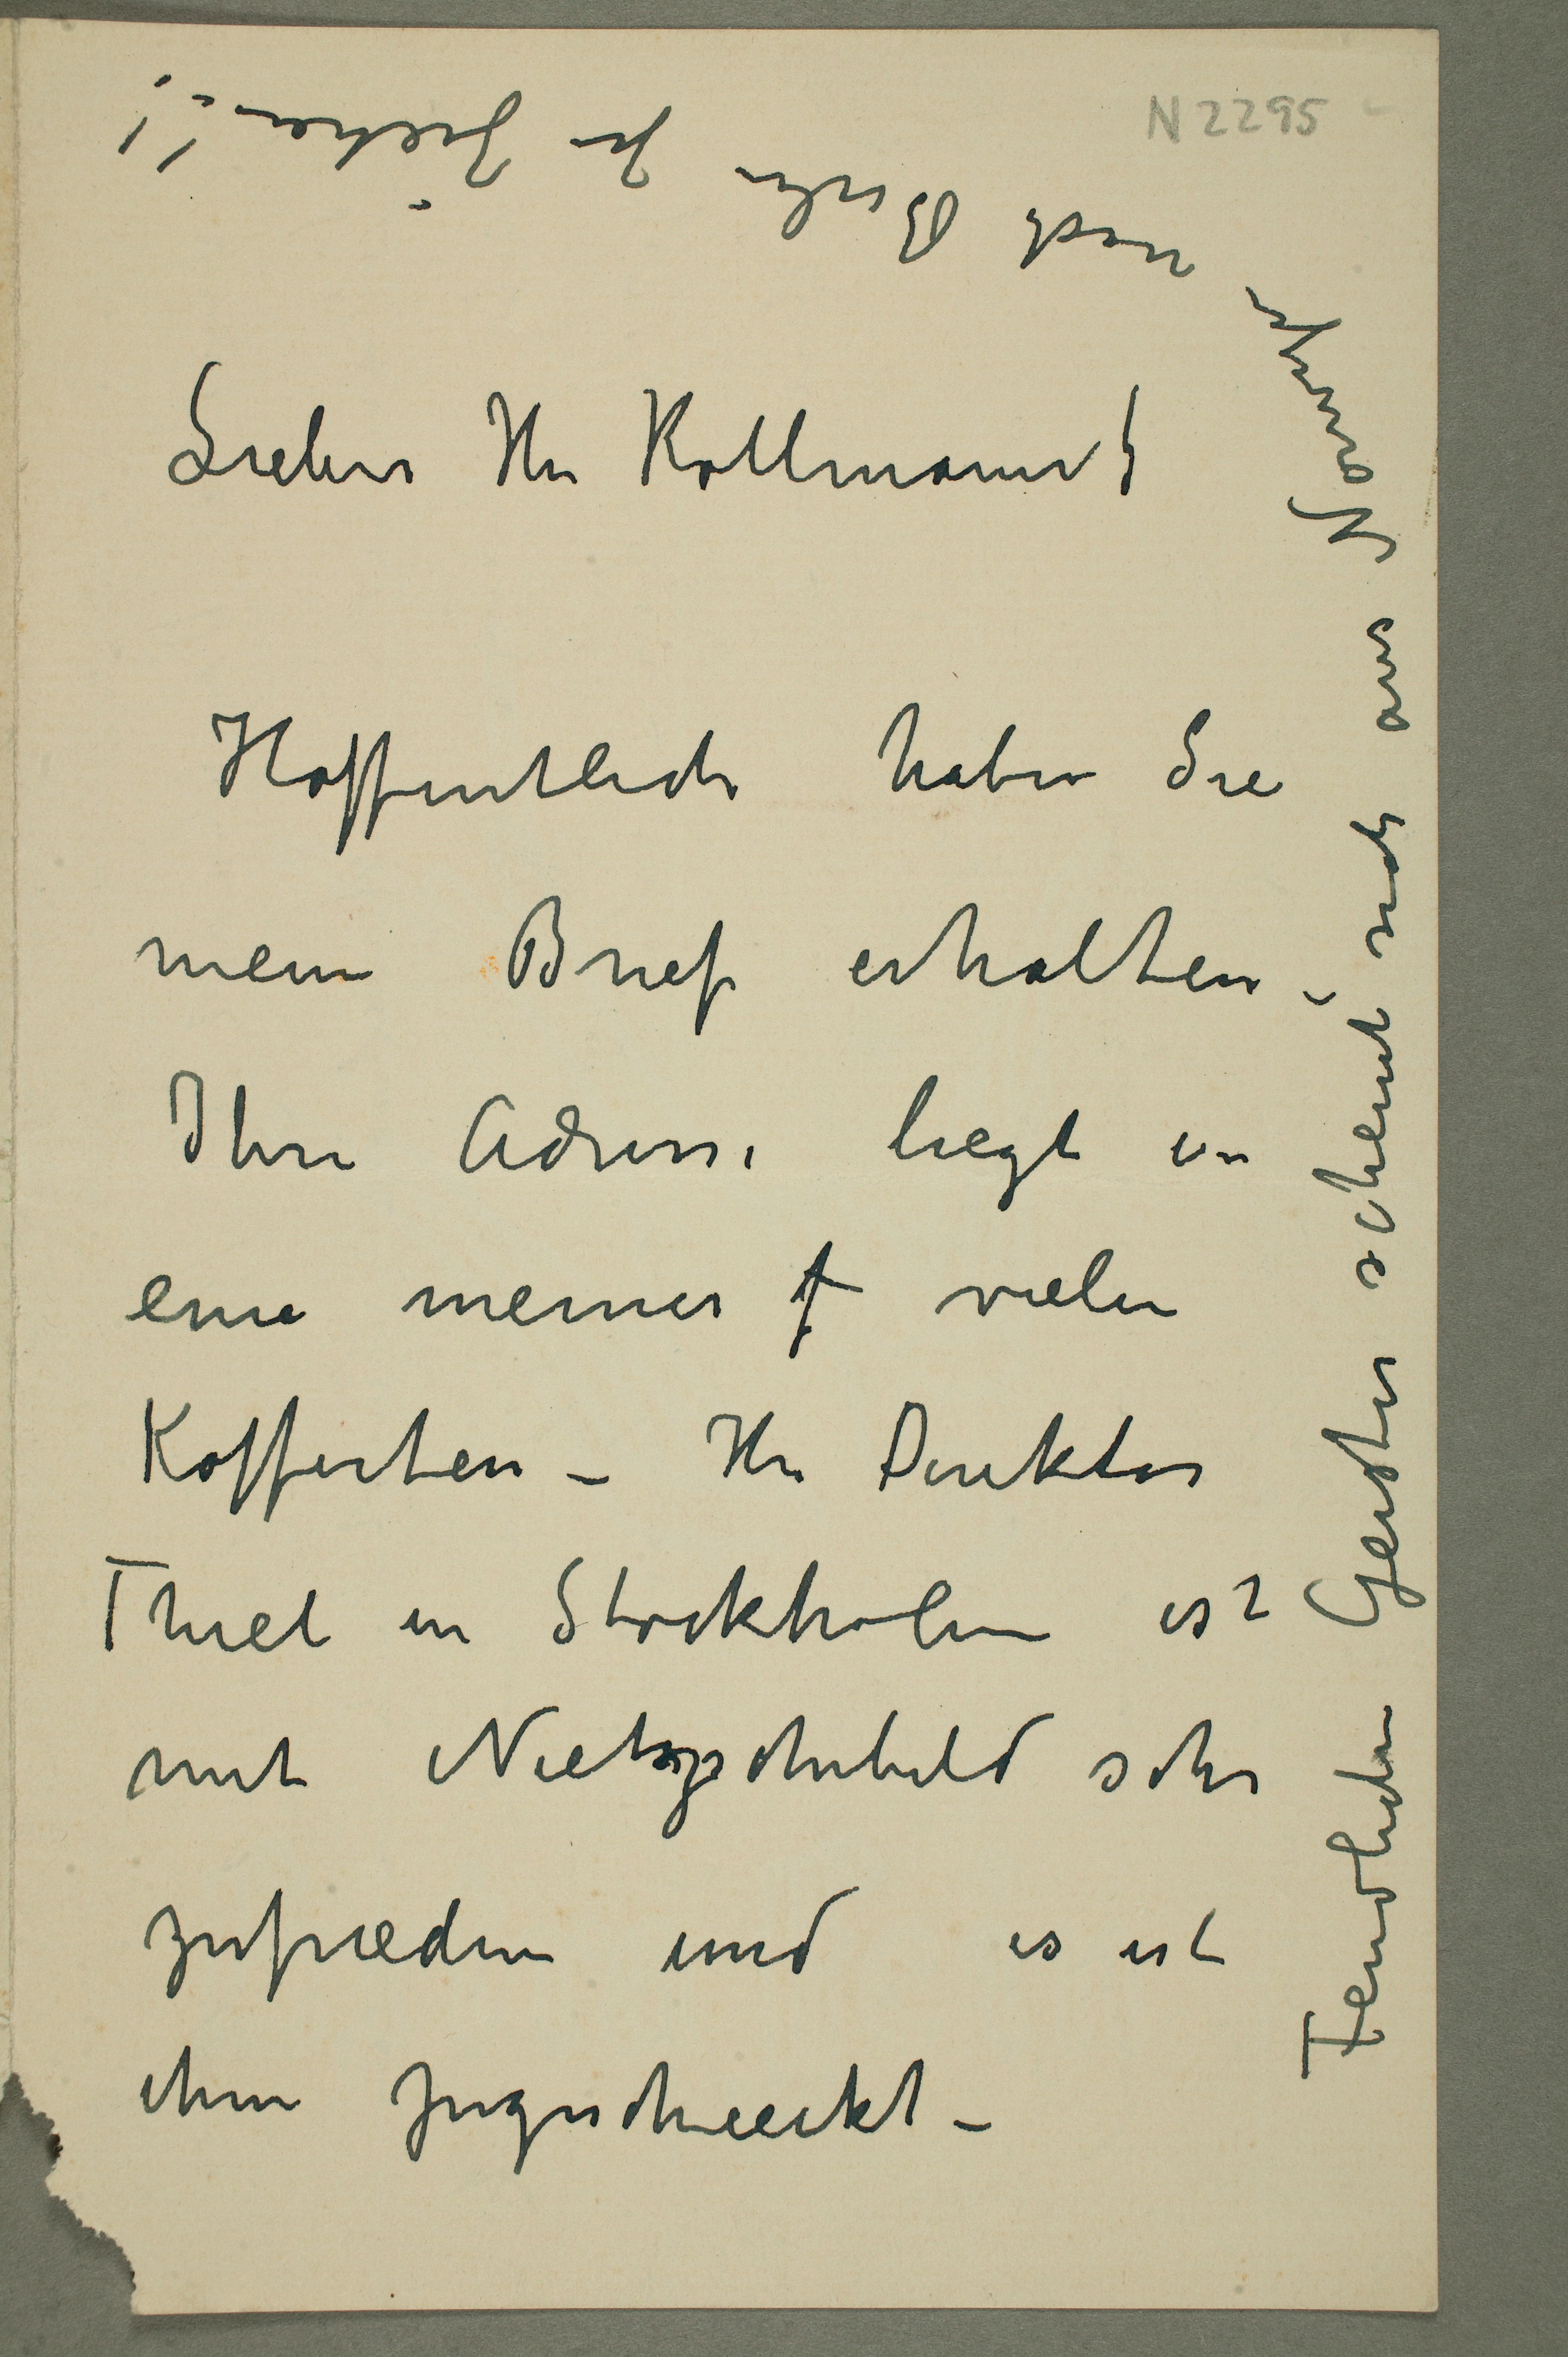 N 2295
Lieber Hr Kollmann!
Hoffentlich haben Sie
mein Brief erhalten –
Ihre Adresse liegt in
eine meiner vielen
Kofferten – Hr Direktor
Thiel in Stockholm ist
mit Nietzschebild sehr
zufrieden und es ist
ihm zugeschickt –
Feindlichen Geister scheint sich aus Norwegen
nach Berlin zu ziehen!!